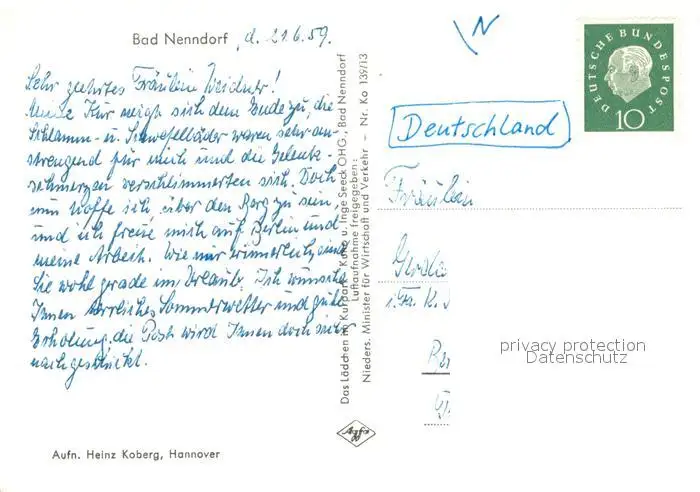 Bad Nenndorf, d. 21.6.59.
Sehr geehrtes Fräulein Weidner!
Meine Kur neigt sich dem Ende zu, die
Schlamm- u. Schwefelbäder waren sehr an-
strengend für mich und die Gelenk-
schmerzen verschlimmerten sich. Doch
nun hoffe ich, über den Berg zu sein,
und ich freue mich auf Berlin und
meine Arbeit. Wie mir erinnerlich, sind
Sie wohl gerade im Urlaub. Ich wünsche
Ihnen herrliches Sommerwetter und gute
Erholung, die Post wird Ihnen doch sicher
nachgeschickt.
Aufn. Heinz Koberg, Hannover
Das Lädchen im Kurpark, Kuno u. Inge Seeck OHG., Bad Nenndorf
Luftaufnahme freigegeben:
Nieders. Minister für Wirtschaft und Verkehr – Nr. Ko 139/13
Agfa
N
DEUTSCHE BUNDESPOST
10
Deutschland
Fräulein
Gerda
privacy protection
Datenschutz